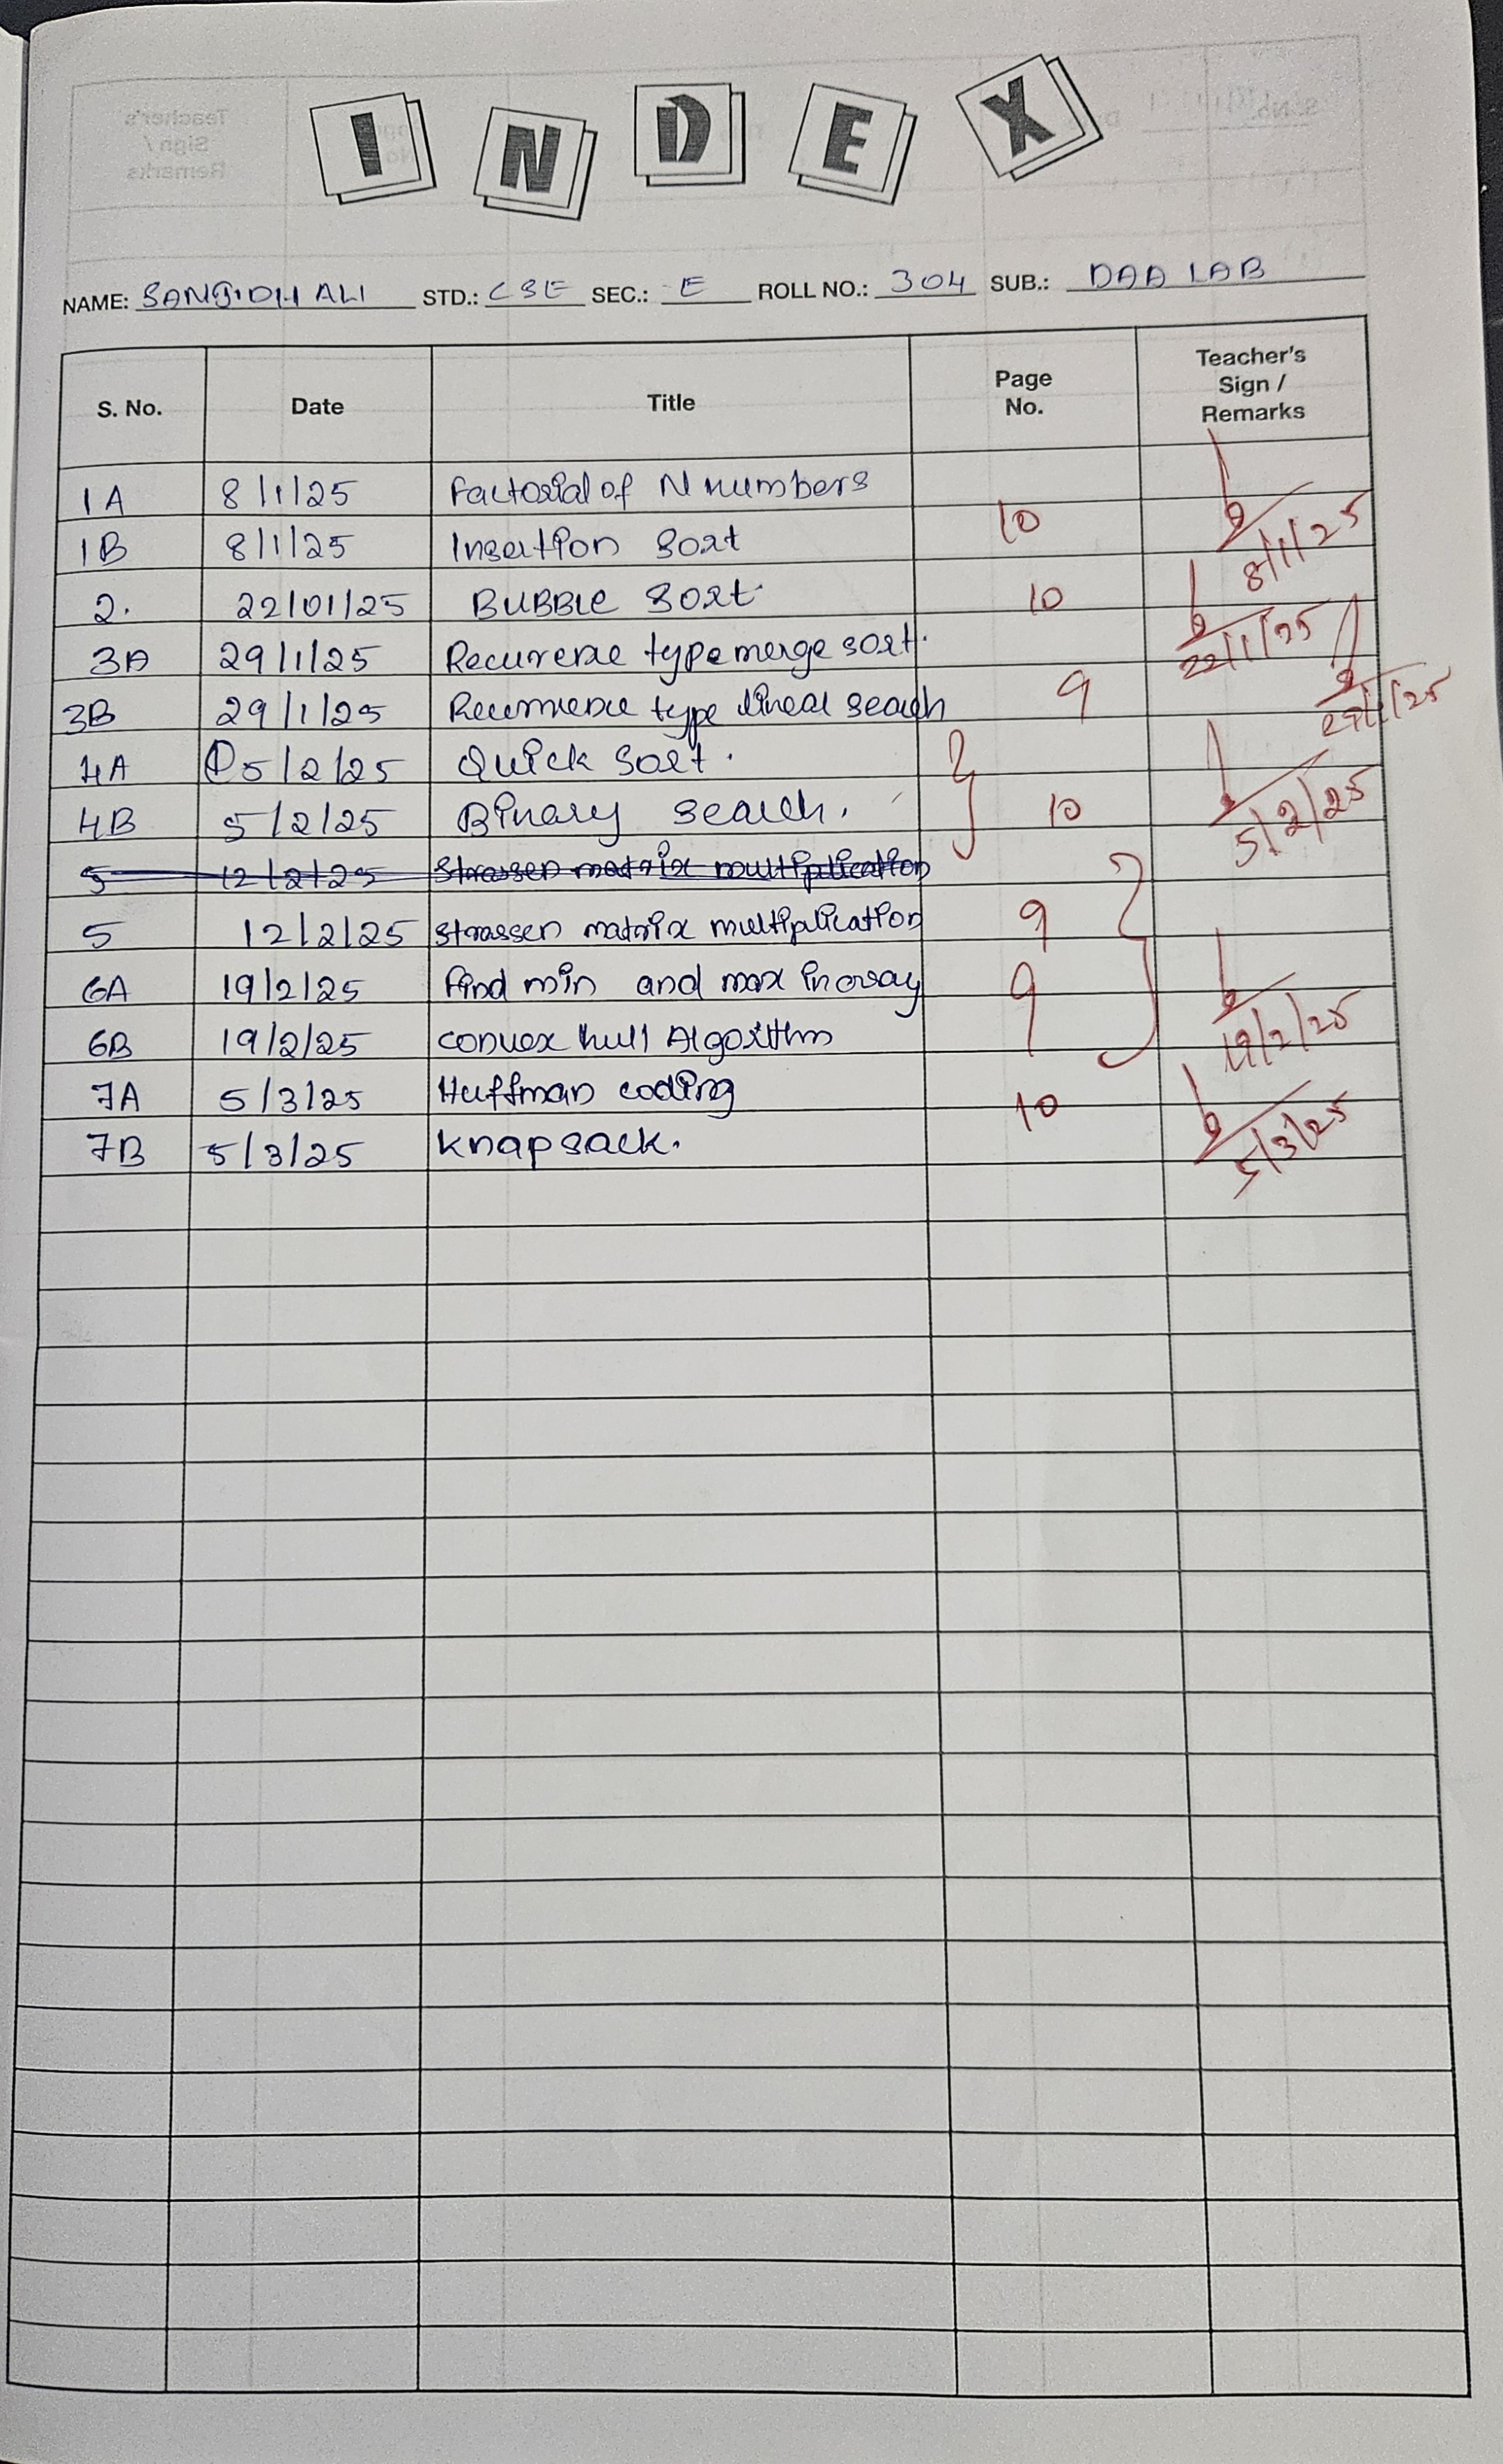 INDEX
NAME: SANJIDH ALI STD.: CSE SEC.: E ROLL NO.: 304 SUB.: DAA LAB
S. No. Date Title Page No. Teacher's Sign / Remarks
1A 8/1/25 Factorial of N numbers
1B 8/1/25 Insertion Sort 10 8/1/25
2. 22/01/25 BUBBLE Sort. 10 22/1/25
3A 29/1/25 Recurerence type merge sort.
3B 29/1/25 type lineal seach 9 29/1/25
4A 05/2/25 Quick Sort.
4B 5/2/25 Binary search. 10 5/2/25
5 12/2/25 Strassen matrix multiplication
5 12/2/25 Strassen matrix multiplication 9
6A 19/2/25 Find min and max in array 9
6B 19/2/25 convex hull Algorithm 19/2/25
7A 5/3/25 Huffman coding 10
7B 5/3/25 knapsack. 5/3/25